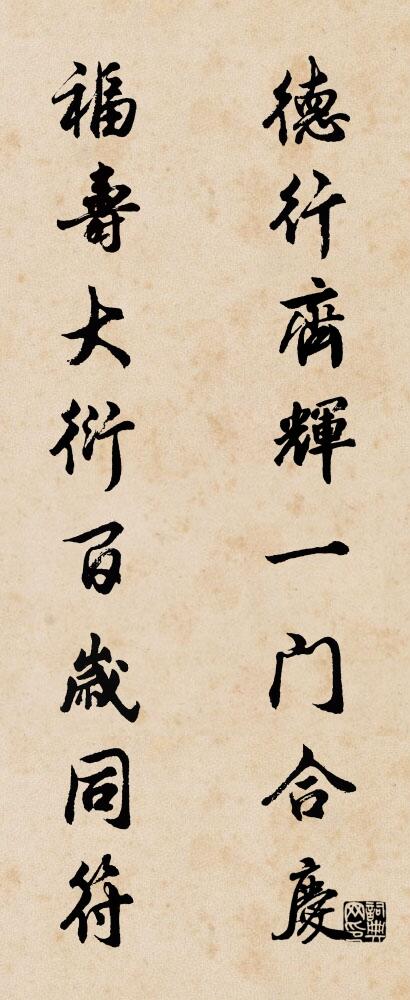 德行齊輝一门合慶
福壽大衍百歲同符
詞典网印